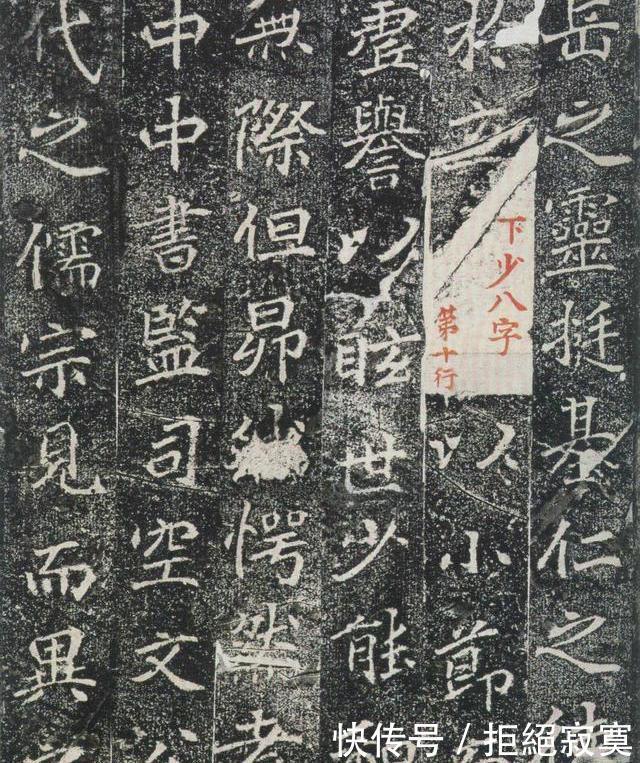 岳之靈挺基仁之
於
下少八字
第十行
以小節
虛譽以眩世少能
無際但昂愕然
中中書監司空文
代之儒宗見而異
快传号 / 拒絕寂寞